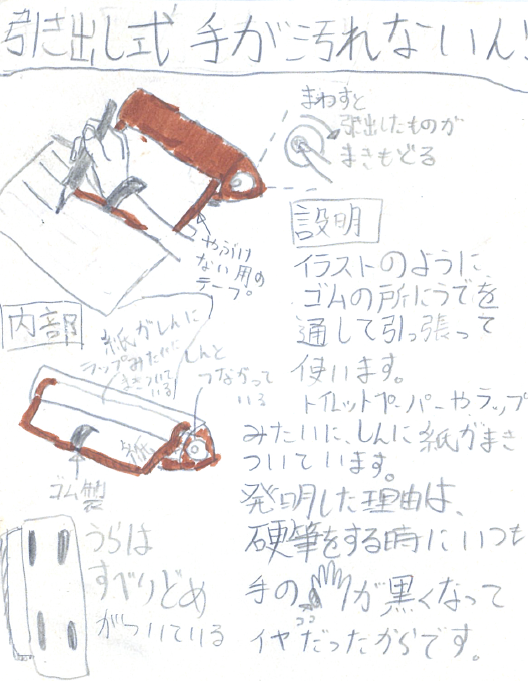 引き出し式 手が汚れないん!
まわすと
引出したものが
まきもどる
やぶけ
ない用の
テープ。
設明
イラストのように、
ゴムの所にうでを
通して引っ張って
使います。
トイレットペーパーやラップ
みたいに、しんに紙がまき
ついています。
発明した理由は、
硬筆をする時にいつも
手の
ココ
が黒くなって
イヤだったからです。
内部
紙がしんに
ラップみたいに
まきついて
いる
しんと
つながって
いる
紙
ゴム製
うらは
すべりどめ
がついている